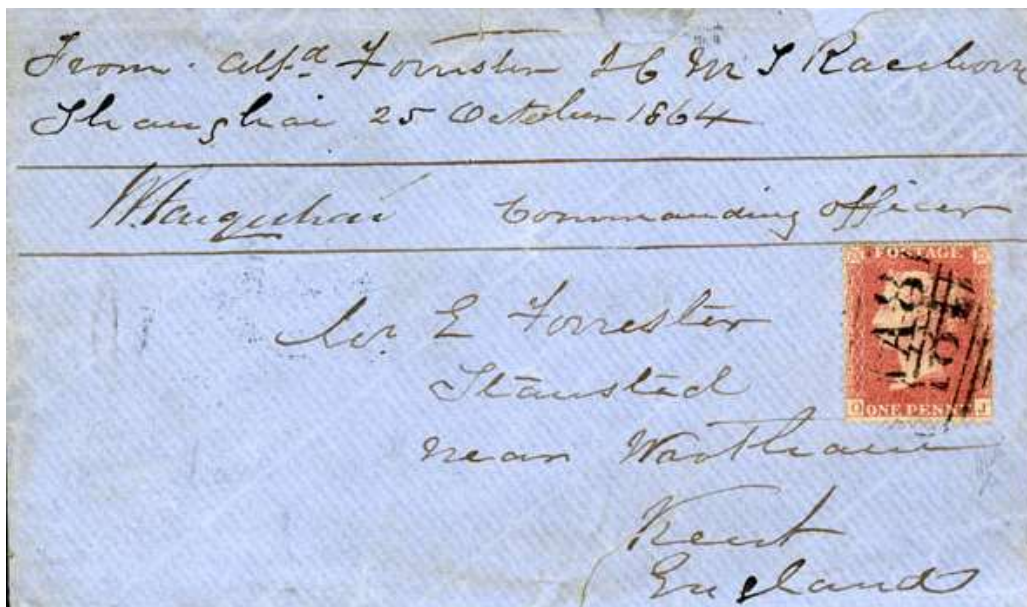 From Alfd Forrester H M S Racehorse
Shanghai 25 October 1864
Commanding officer
POSTAGE
A8
Mr E Forrester
Stansted
O ONE PENNY J
near Wrotham
Kent
England